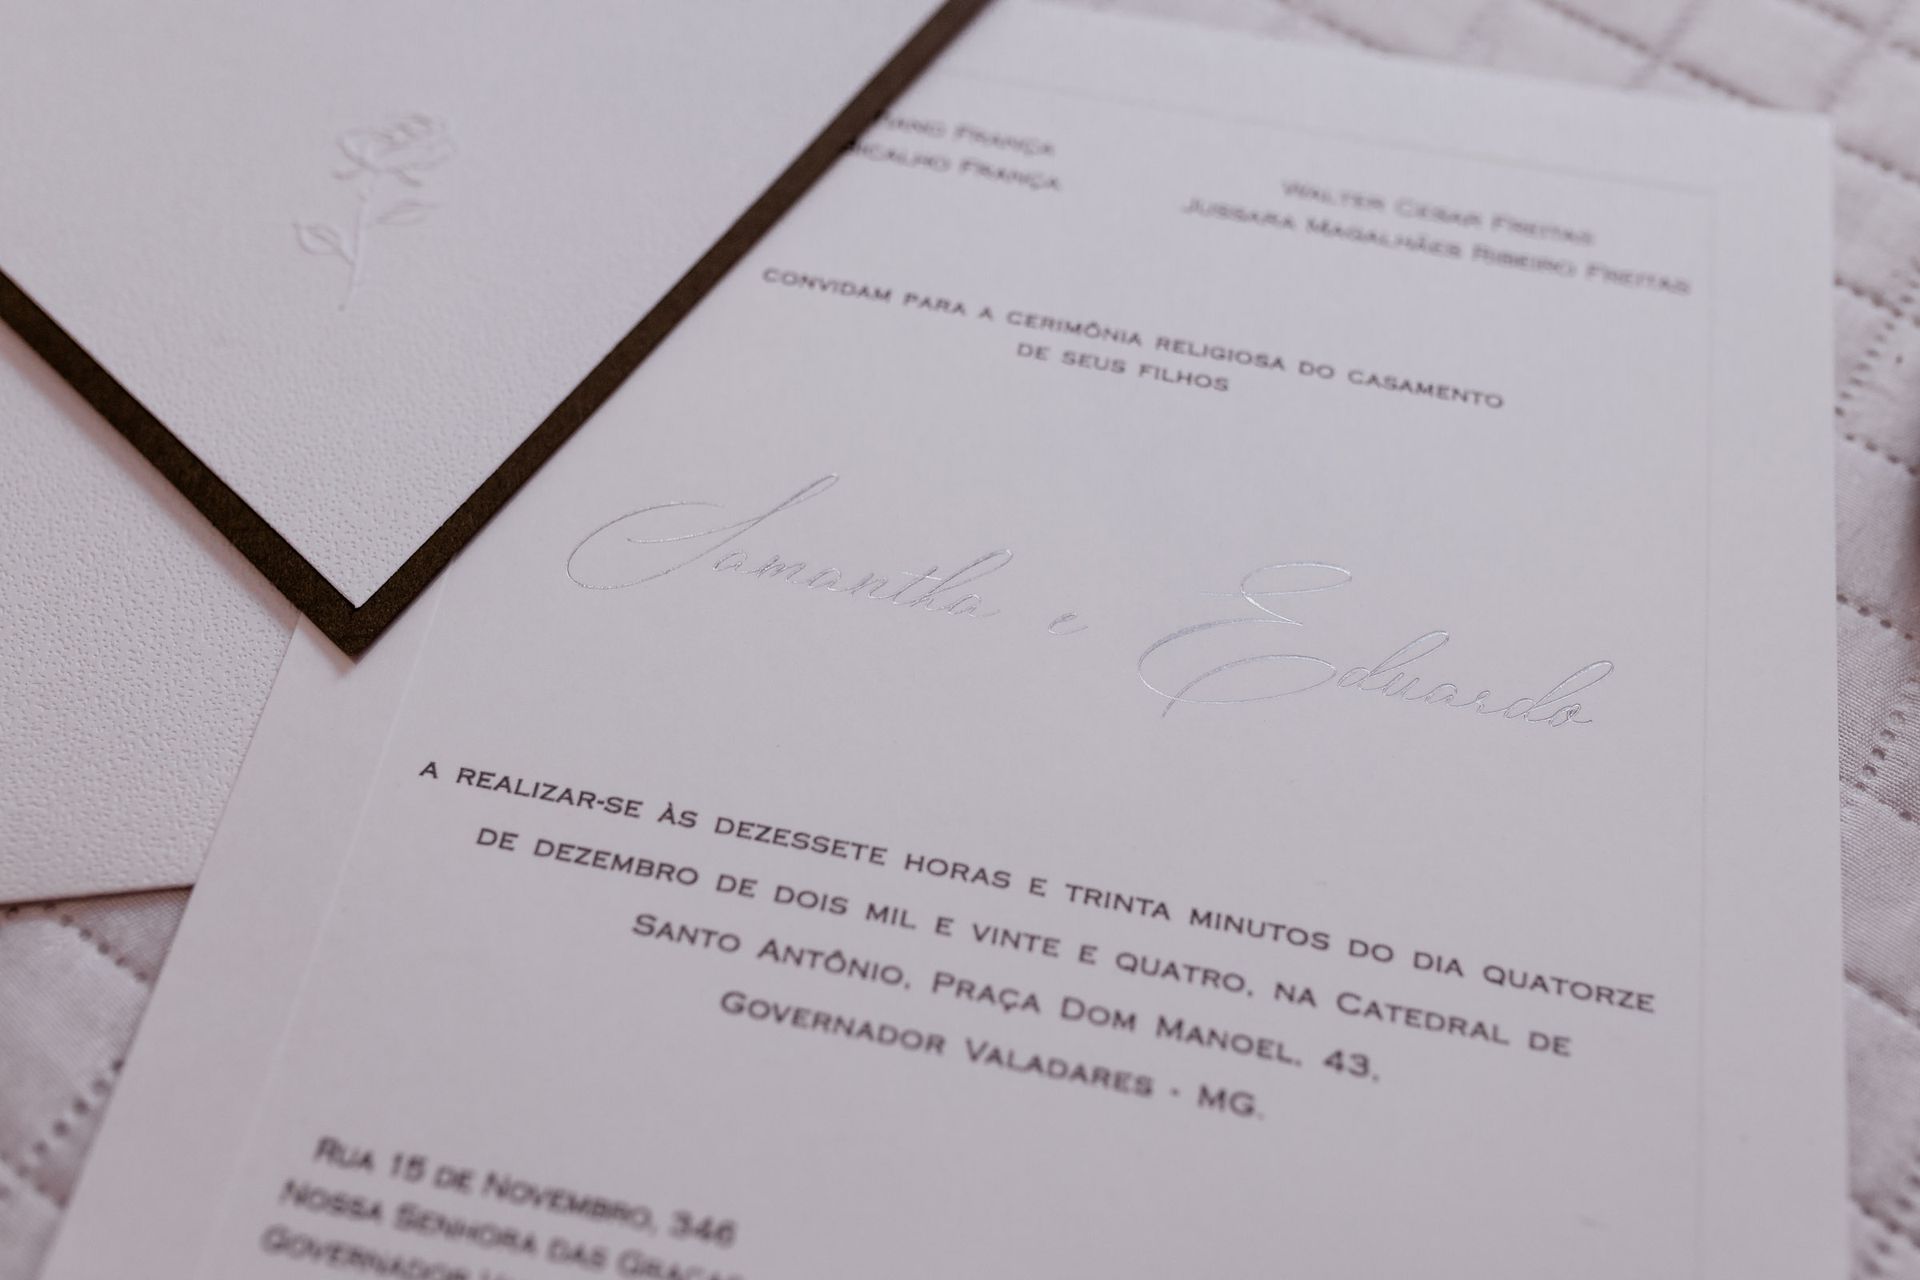 França
França
Walter Cesar Freitas
Jussara Magalhães Ribeiro Freitas
CONVIDAM PARA A CERIMÔNIA RELIGIOSA DO CASAMENTO
DE SEUS FILHOS
Samantha e Eduardo
A REALIZAR-SE ÀS DEZESSETE HORAS E TRINTA MINUTOS DO DIA QUATORZE
DE DEZEMBRO DE DOIS MIL E VINTE E QUATRO, NA CATEDRAL DE
SANTO ANTÔNIO, PRAÇA DOM MANOEL, 43,
GOVERNADOR VALADARES - MG.
Rua 15 de Novembro, 346
Nossa Senhora das Graças
Governador